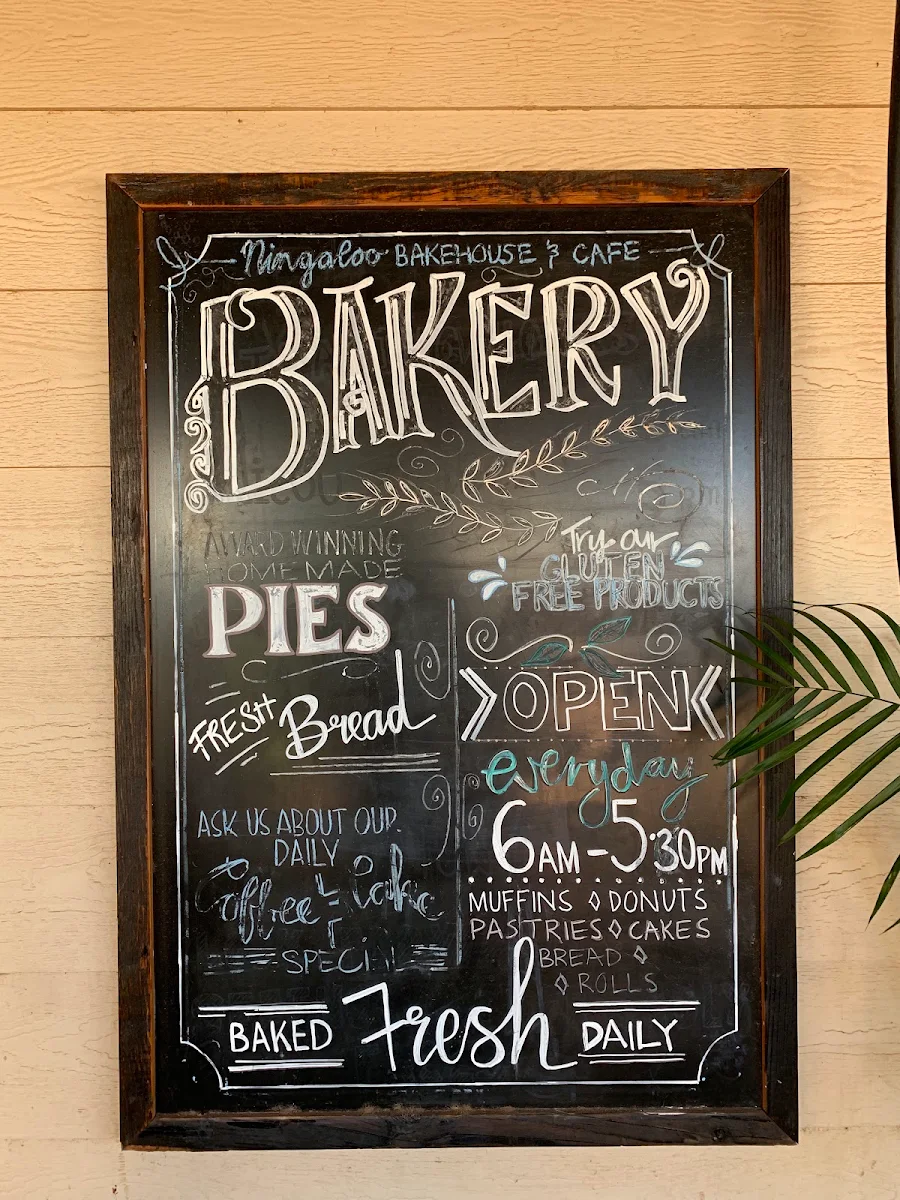 Ningaloo BAKEHOUSE & CAFE
BAKERY
AWARD WINNING
HOME MADE
PIES
FRESH Bread
ASK US ABOUT OUR
DAILY
Coffee & Cake
SPECIAL
Try our
GLUTEN
FREE PRODUCTS
OPEN
everyday
6AM - 5:30PM
MUFFINS ◊ DONUTS
PASTRIES ◊ CAKES
BREAD ◊
◊ ROLLS
BAKED Fresh DAILY